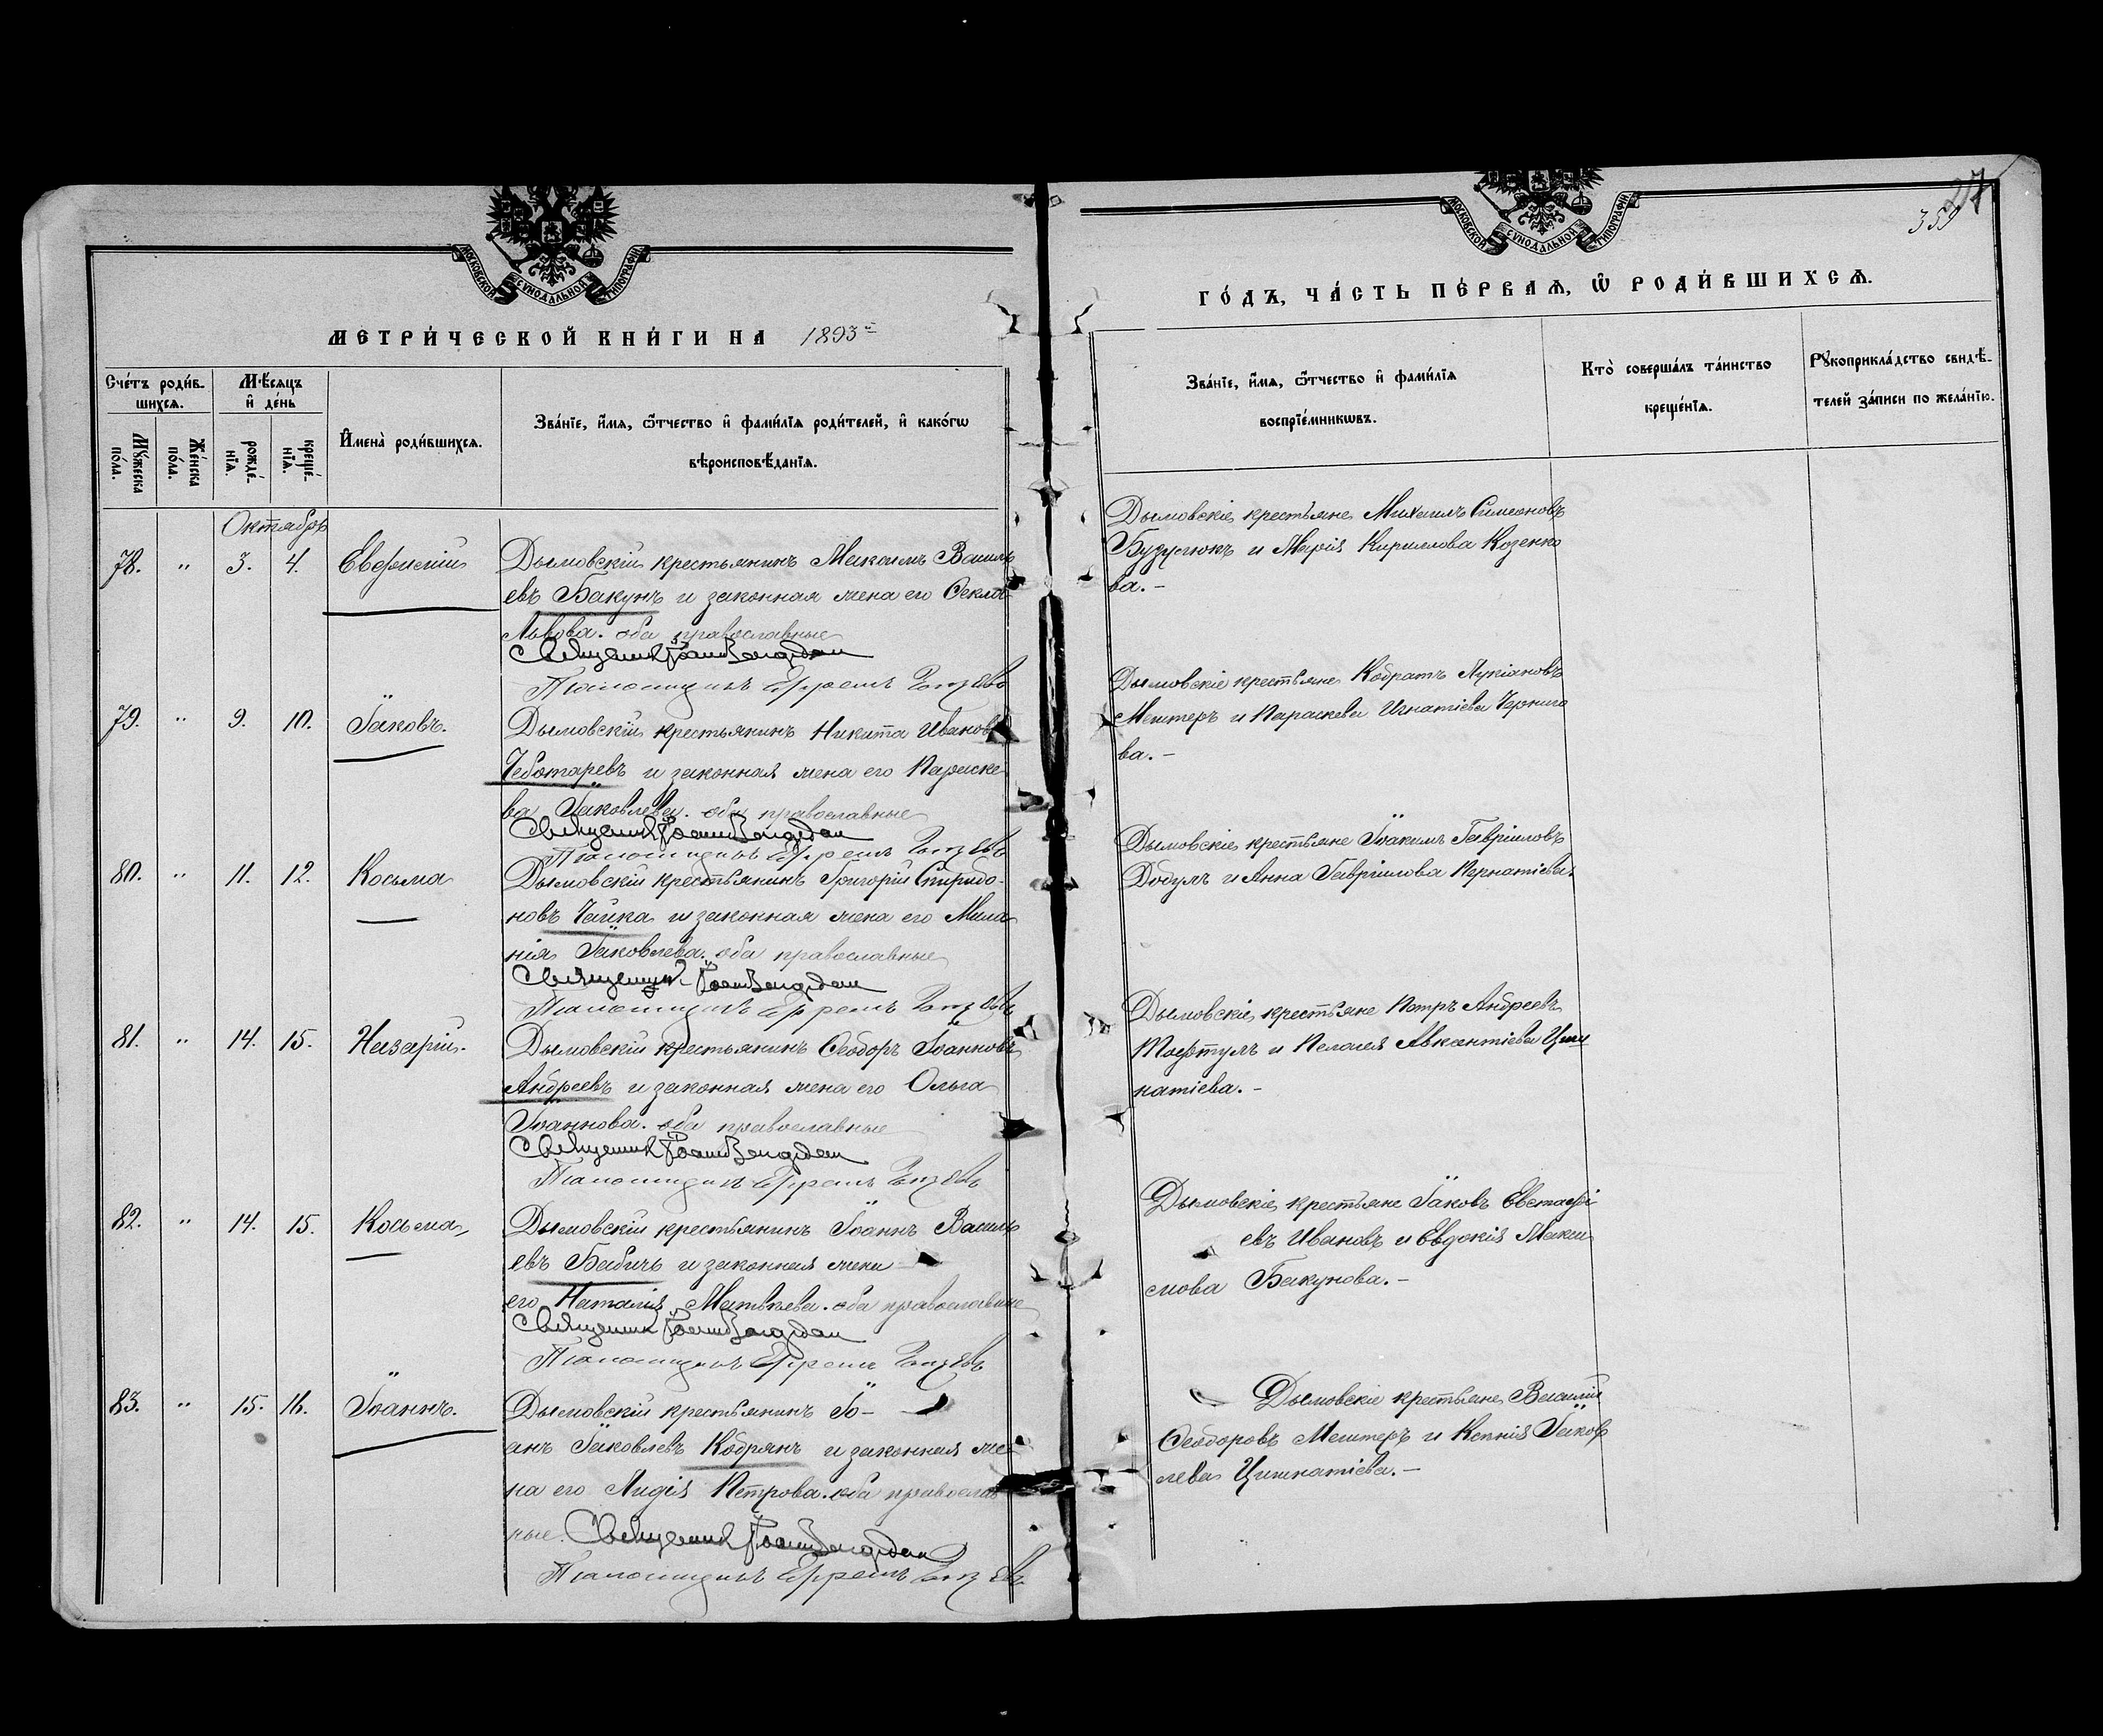 МОСКОВСКОЙ СУНОДАЛЬНОЙ ТИПОГРАФІИ
МЕТРИ́ЧЕСКОЙ КНИ́ГИ НА 1893
Счéтъ роди́в-
шихсѧ.
Мꙋ́жеска
пóла.
Жéнска
пóла.
Мѣ́сѧцъ
и҆ дéнь
рождé-
нїѧ.
креще́-
нїѧ.
И҆мена̀ роди́вшихсѧ.
Звáнїе, и҆́мѧ, ѻ҆́тчество и҆ фами́лїѧ роди́телей, и҆ какóгѡ
вѣроисповѣ́данїѧ.
Октябрь
78. " 3. 4. Евфимій
Дымовскій крестьянинъ Максимъ Василь
евъ Бакунъ и законная жена его Ѳекла
Львова. оба православные
Священникъ Іоаннъ
Псаломщикъ Ефремъ
79. " 9. 10. Іаковъ.
Дымовскій крестьянинъ Никита Ивановъ
Чеботаревъ и законная жена его Параске
ва Іаковлева. оба православные
Священникъ Іоаннъ
Псаломщикъ Ефремъ
80. " 11. 12. Косьма
Дымовскій крестьянинъ Григорій Спиридо-
новъ Чайка и законная жена его Мила
нія Іаковлева. оба православные
Священникъ Іоаннъ
Псаломщикъ Ефремъ
81. " 14. 15. Назарій.
Дымовскій крестьянинъ Ѳеодоръ Іоанновъ
Андреевъ и законная жена его Ольга
Іоаннова. оба православные
Священникъ Іоаннъ
Псаломщикъ Ефремъ
82. " 14. 15. Косьма
Дымовскій крестьянинъ Іоаннъ Василь
евъ Бабичъ и законная жена
его Наталія Матвѣева. оба православные
Священникъ Іоаннъ
Псаломщикъ Ефремъ
83. " 15. 16. Іоаннъ.
Дымовскій крестьянинъ Іо-
анъ Іаковлевъ Кодрянъ и законная же
на его Лидія Петрова. оба православ
ные. Священникъ Іоаннъ
Псаломщикъ Ефремъ
МОСКОВСКОЙ СУНОДАЛЬНОЙ ТИПОГРАФІИ
27
359
ГО́ДЪ, ЧА́СТЬ ПЕ́РВАѦ, Ѡ҆ РОДИ́ВШИХСѦ.
Звáнїе, и҆́мѧ, ѻ҆́тчество и҆ фами́лїѧ
воспрїéмникѡвъ.
Ктò совершáлъ тáинство
крещéнїѧ.
Рꙋкоприклáдство свидѣ́-
телей зáписи по желáнїю.
Дымовскіе крестьяне Михаилъ Симеоновъ
и Марія Кириллова Козенко
ва. -
Дымовскіе крестьяне Кодратъ Лукіановъ
Мештеръ и Параскева Игнатіева
ва. -
Дымовскіе крестьяне Іоакимъ Гавріиловъ
Додулъ и Анна Гавріилова
Дымовскіе крестьяне Петръ Андреевъ
и Пелагея Авксентіева Циш
натіева. -
Дымовскіе крестьяне Іаковъ Евстафі
евъ Ивановъ и Евдокія Макси
мова Бакунова. -
Дымовскіе крестьяне Василій
Ѳеодоровъ Мештеръ и Ксенія Іаков
лева Цишнатіева. -